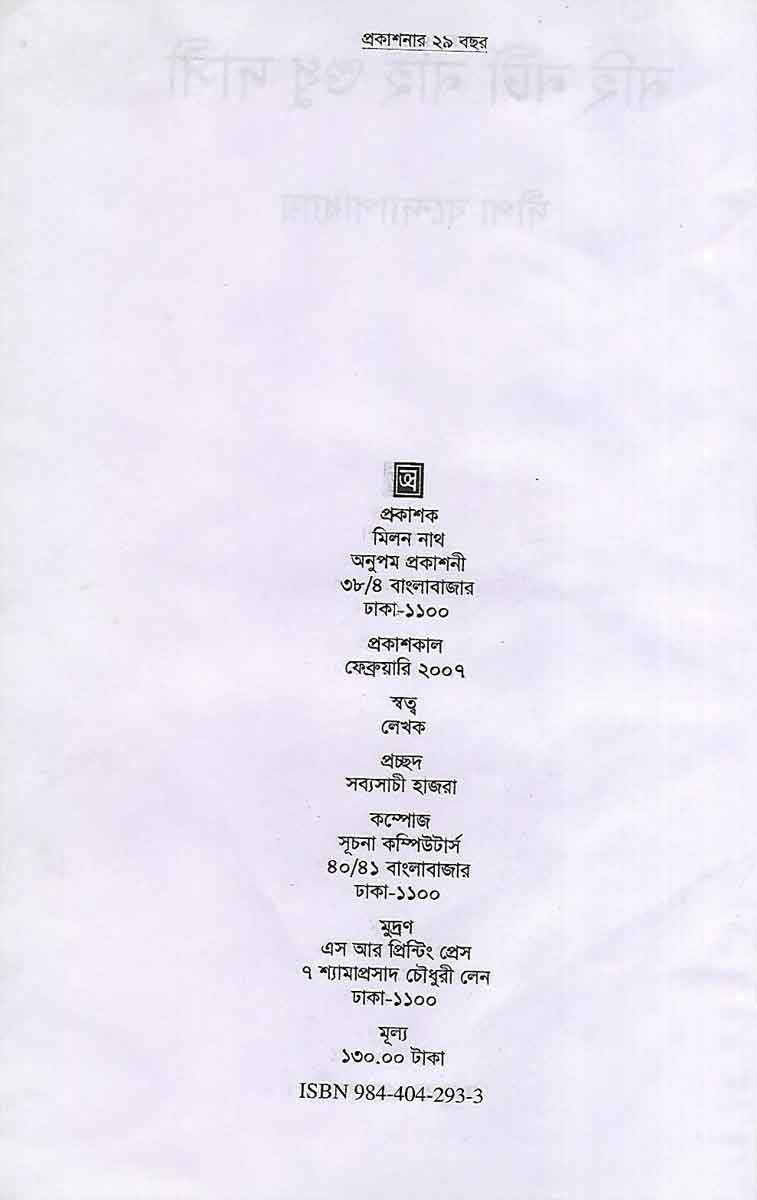 প্রকাশনার ২৯ বছর
নহি নটী নহি শুধু দাসী
দীপা বন্দ্যোপাধ্যায়
অ
প্রকাশক
মিলন নাথ
অনুপম প্রকাশনী
৩৮/৪ বাংলাবাজার
ঢাকা-১১০০
প্রকাশকাল
ফেব্রুয়ারি ২০০৭
স্বত্ব
লেখক
প্রচ্ছদ
সব্যসাচী হাজরা
কম্পোজ
সূচনা কম্পিউটার্স
৪০/৪১ বাংলাবাজার
ঢাকা-১১০০
মুদ্রণ
এস আর প্রিন্টিং প্রেস
৭ শ্যামাপ্রসাদ চৌধুরী লেন
ঢাকা-১১০০
মূল্য
১৩০.০০ টাকা
ISBN 984-404-293-3